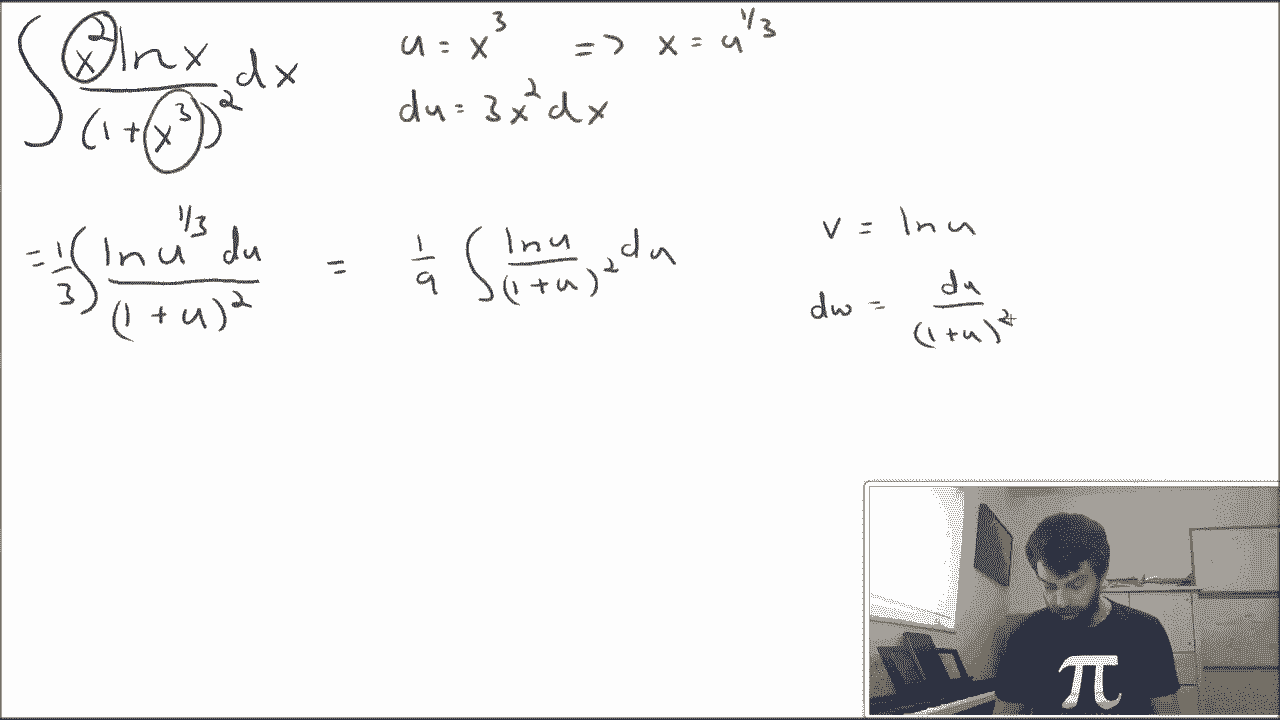 ∫ x² ln x / (1 + x³)² dx
u = x³ => x = u^1/3
du = 3x² dx
= 1/3 ∫ ln u^1/3 du / (1 + u)² = 1/9 ∫ ln u / (1 + u)² du
v = ln u
dw = du / (1 + u)²
π